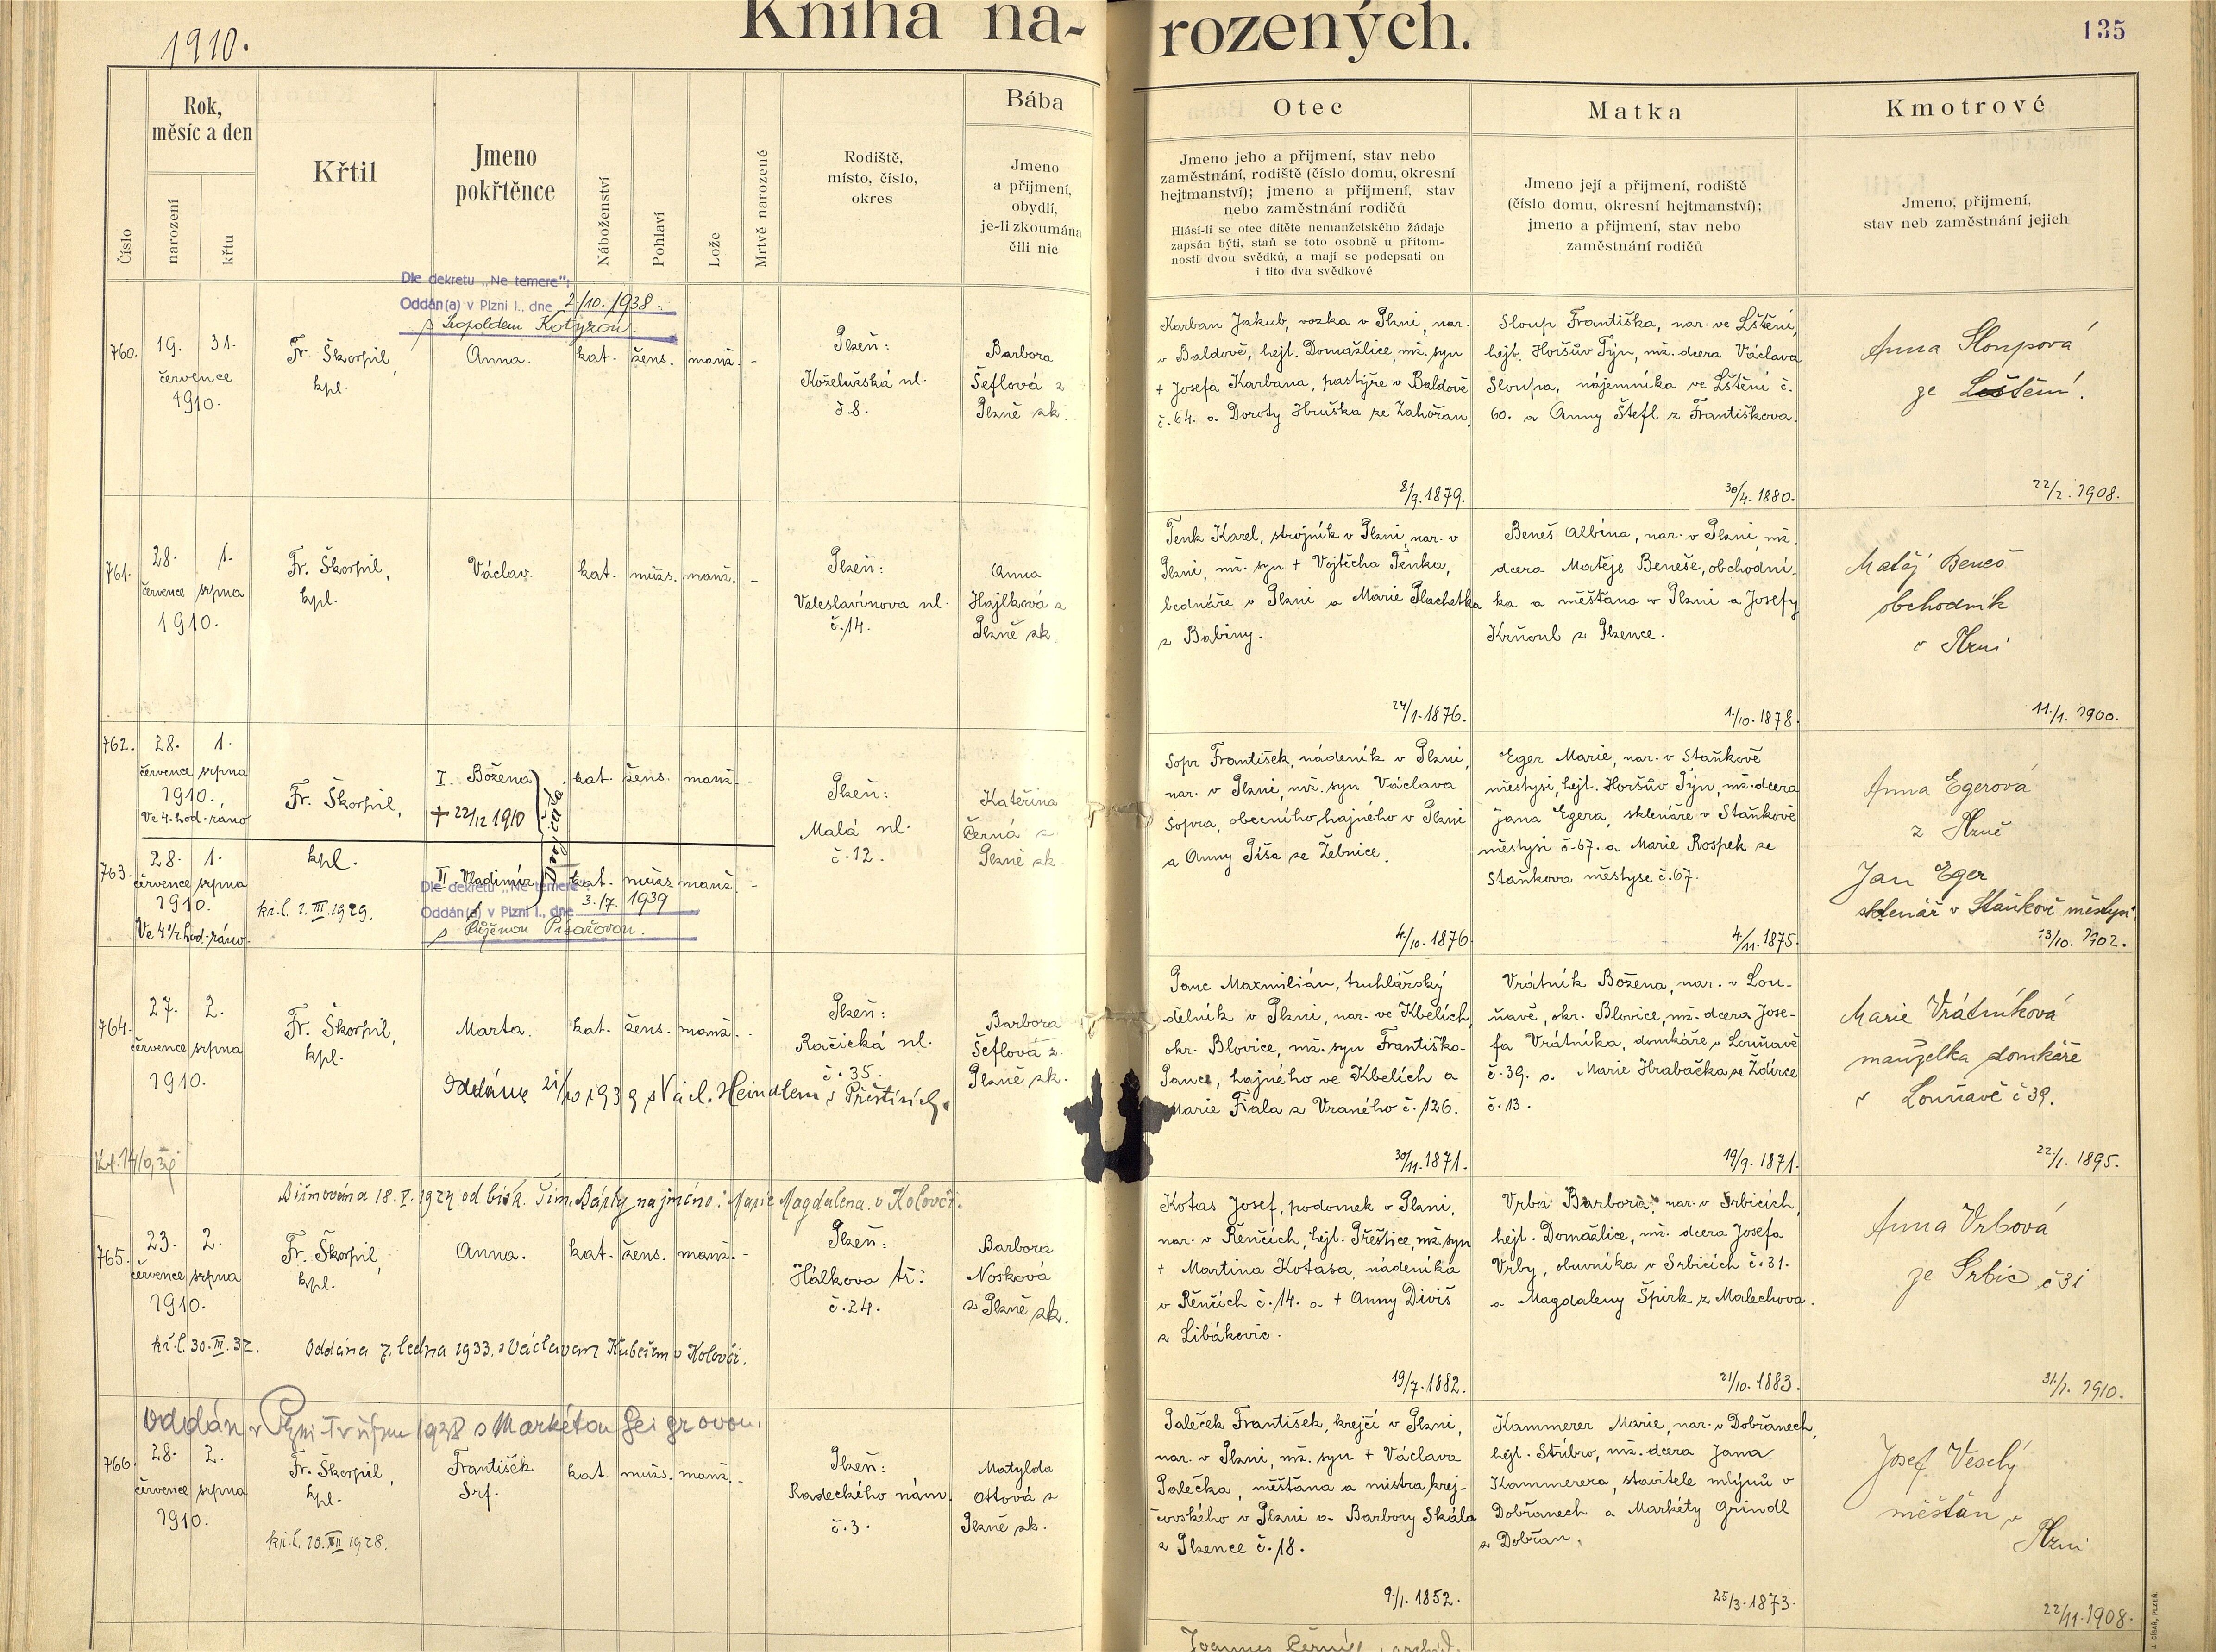 1910.
Kniha na-
rozených.
135
Číslo
Rok,
měsíc a den
narození
křtu
Křtil
Jmeno
pokřtěnce
Náboženství
Pohlaví
Lože
Mrtvě narozené
Rodiště,
místo, číslo,
okres
Bába
Jmeno
a přijmení,
obydlí,
je-li zkoumána
čili nic
Otec
Jmeno jeho a přijmení, stav nebo
zaměstnání, rodiště (číslo domu, okresní
hejtmanství); jmeno a přijmení, stav
nebo zaměstnání rodičů
Hlásí-li se otec dítěte nemanželského žádaje
zapsán býti, staň se toto osobně u přítom-
nosti dvou svědků, a mají se podepsati on
i tito dva svědkové
Matka
Jmeno její a přijmení, rodiště
(číslo domu, okresní hejtmanství);
jmeno a přijmení, stav nebo
zaměstnání rodičů
Kmotrové
Jmeno, přijmení,
stav neb zaměstnání jejich
Dle dekretu „Ne temere":
Oddán(a) v Plzni I., dne 2./10. 1938.
s Leopoldem Kotyzou.
760.
19. 31.
července
1910.
Fr. Škorpil,
kpl.
Anna.
kat.
žens.
manž.
-
Plzeň:
Koželužská ul.
č 8.
Barbora
Šeflová z
Plzně zk.
Karban Jakub, vozka v Plzni, nar.
v Baldově, hejt. Domažlice, mž. syn
+ Josefa Karbana, pastýře v Baldově
č. 64. a Doroty Hruška ze Zahořan.
8/9. 1879.
Sloup Františka, nar. ve Lštění,
hejt. Horšův Týn, mž. dcera Václava
Sloupa, nájemníka ve Lštění č.
60. a Anny Štefl z Františkova.
30/4. 1880.
Anna Sloupová
ze Leštění.
22/2. 1908.
761.
28. 1.
července srpna
1910.
Fr. Škorpil,
kpl.
Václav.
kat.
mužs.
manž.
-
Plzeň:
Veleslavínova ul.
č. 14.
Anna
Hajlková z
Plzně zk.
Tenk Karel, strojník v Plzni, nar. v
Plzni, mž. syn + Vojtěcha Tenka,
bednáře v Plzni a Marie Plachetka
z Babiny.
24/1. 1876.
Beneš Albina, nar. v Plzni, mž.
dcera Matěje Beneše, obchodní-
ka a měšťana v Plzni a Josefy
Krňoul z Plzence.
1./10. 1878.
Matěj Beneš
obchodník
v Plzni
11./1. 1900.
762.
28. 1.
července srpna
1910.,
Ve 4. hod. ráno
Fr. Škorpil,
kpl.
I. Božena
+ 22/12 1910
Dvojčata.
kat.
žens.
manž.
-
Plzeň:
Malá ul.
č. 12.
Kateřina
Černá z
Plzně zk.
Sopr František, nádeník v Plzni,
nar. v Plzni, mž. syn Václava
Sopra, obecního hajného v Plzni
a Anny Píša ze Žebnice.
4./10. 1876.
Eger Marie, nar. v Staňkově
městysi, hejt. Horšův Týn, mž. dcera
Jana Egera, sklenáře v Staňkově
městysi č. 67. a Marie Rospek ze
Staňkova městyse č. 67.
4./11. 1875.
Anna Egerová
z Plzně
Jan Eger
sklenář v Staňkově městysi.
13/10. 1902.
763.
28. 1.
července srpna
1910.
Ve 4 1/2 hod. ráno.
kř. l. 1. III. 1929.
II Vladimír
kat.
mužs.
manž.
-
Dle dekretu „Ne temere":
Oddán(a) v Plzni I., dne 3./7. 1939
s Písařovou.
764.
27. 2.
července srpna
1910.
Fr. Škorpil,
kpl.
Marta.
kat.
žens.
manž.
-
Plzeň:
Račická ul.
č. 35.
Barbora
Šeflová z
Plzně zk.
Oddána 21/10 1939 s Václ. Heindlem v Přešticích.
Panc Maxmilián, truhlářský
dělník v Plzni, nar. ve Kbelích,
okr. Blovice, mž. syn Františka
Pance, hajného ve Kbelích a
Marie Fiala z Vraného č. 126.
30/11. 1871.
Vrátník Božena, nar. v Lou-
ňavě, okr. Blovice, mž. dcera Jose-
fa Vrátníka, domkáře v Louňavě
č. 39. a Marie Hrabačka ze Ždírce
č. 13.
19/9. 1871.
Marie Vrátníková
manželka domkáře
v Louňavě č 39.
22./1. 1895.
Biřmována 18. V. 1924 od bisk. Šim. Bárty na jméno: Marie Magdalena v Kolovči.
765.
23. 2.
července srpna
1910.
Fr. Škorpil,
kpl.
Anna.
kat.
žens.
manž.
-
Plzeň:
Hálkova tř:
č. 24.
Barbora
Nosková
z Plzně zk.
kř. l. 30. III. 32.
Oddána 7. ledna 1933. s Václavem v Kolovči.
Kotas Josef, podomek v Plzni,
nar. v Řenčích, hejt. Přeštice, mž. syn
+ Martina Kotasa, nádeníka
v Řenčích č. 14. a + Anny Diviš
z Libákovic.
19/7. 1882.
Vrba Barbora, nar. v Srbicích,
hejt. Domažlice, mž. dcera Josefa
Vrby, obuvníka v Srbicích č. 31.
a Magdaleny Špirk z Malechova.
21/10. 1883.
Anna Vrbová
ze Srbic č 31
31./1. 1910.
Oddán v Plzni IV říjnu 1938 s Markétou Geigrovou.
766.
28. 2.
července srpna
1910.
Fr. Škorpil,
kpl.
kř. l. 10. XII 1928.
František
Srf.
kat.
mužs.
manž.
-
Plzeň:
Radeckého nám.
č. 3.
Matylda
Ottová z
Plzně zk.
Paleček František, krejčí v Plzni,
nar. v Plzni, mž. syn + Václava
Palečka, měšťana a mistra krej-
čovského v Plzni a Barbory Skála
z Plzence č. 18.
9./1. 1852.
Kammerer Marie, nar. v Dobřanech,
hejt. Stříbro, mž. dcera Jana
Kammerera, stavitele mlýnů v
Dobřanech a Markéty Grindl
z Dobřan.
25/3. 1873.
Josef Veselý
měšťan v
Plzni
22/11. 1908.
J. CÍSAŘ, PLZEŇ